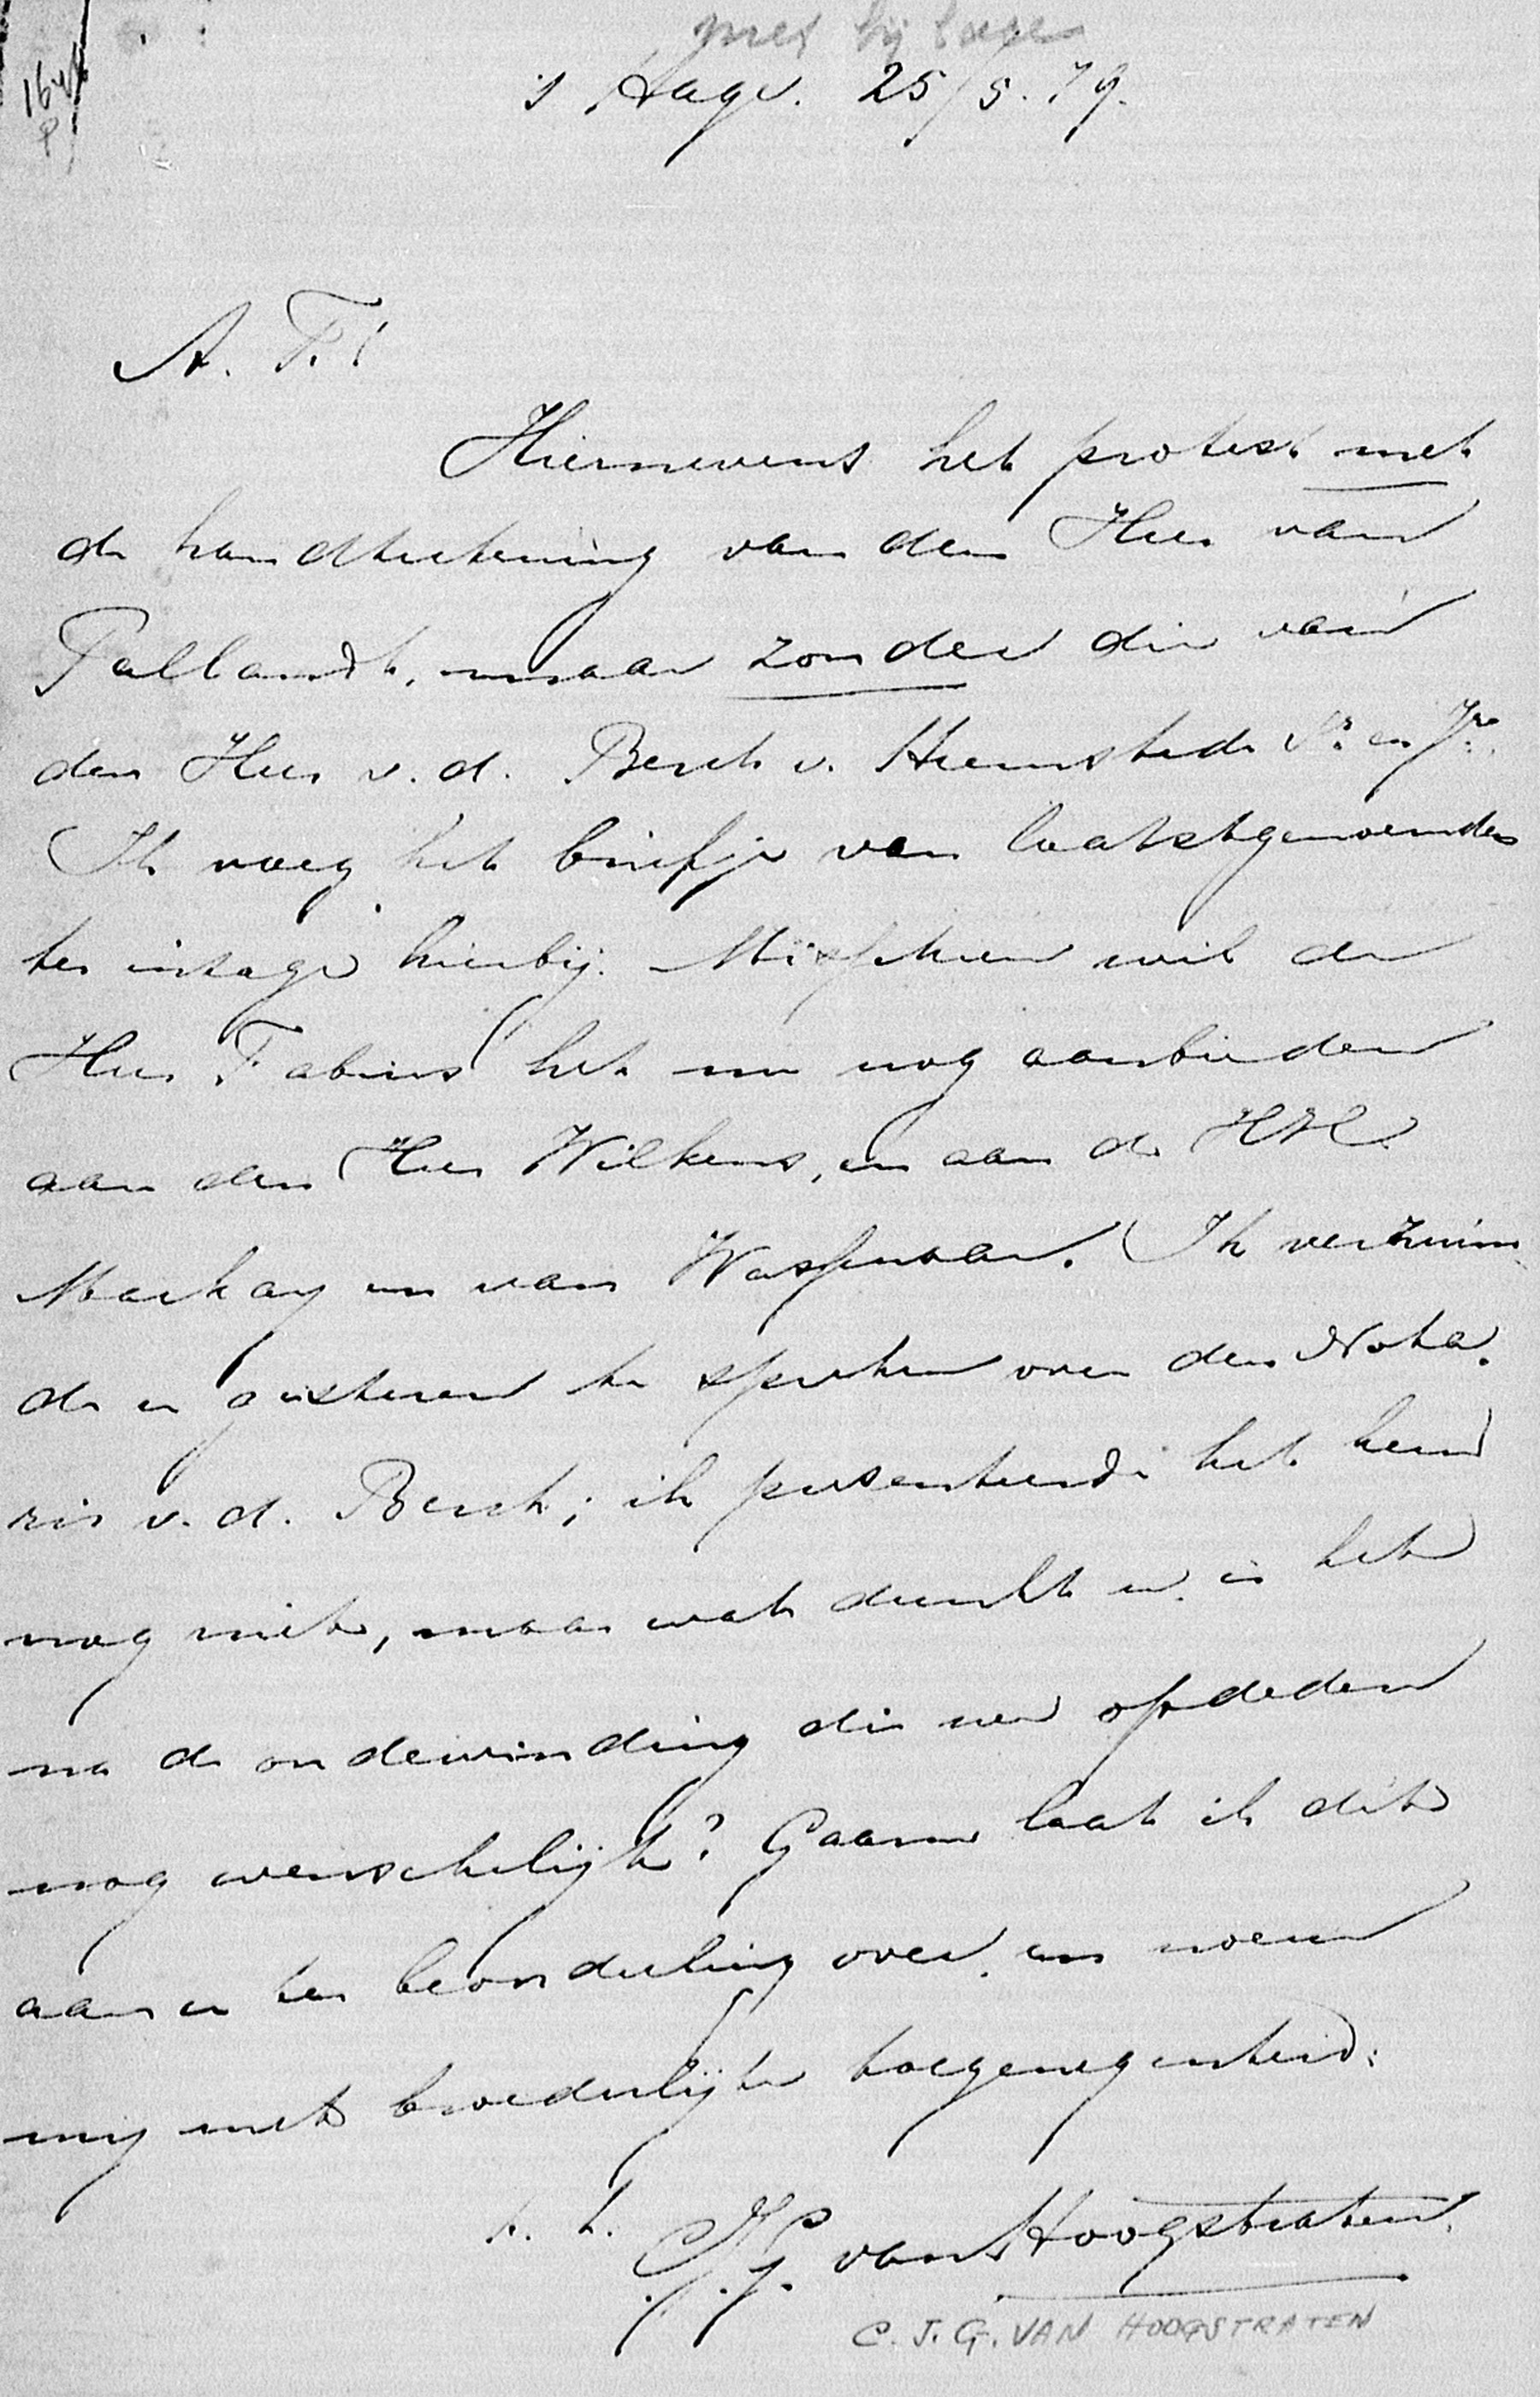 met bijlage
's Hage. 25/5.79.
A. F.!
Hiernevens het protest met
de handteekening van den Heer van
Pallandt, maar zonder die van
den Heer v. d. Berch v. Heemstede Sr. en Jr.
(Ik voeg het briefje van laatstgenoemden
ter inzage hierbij. Misschien wil de
Heer Fabius het nu nog aanbieden
aan den Heer Wilkens, en aan de HH.
Mackay en van Wassenaar. (Ik verzuim
de u gisteren te spreken over den Nota.
ris v. d. Berch; ik presenteerde het hem
nog niet, maar wat dunkt u, is het
na de ondervinding die we opdeden
nog wenschelijk? Gaarne laat ik dit
aan u ter beoordeeling over, en noem
mij met broederlijke toegenegenheid:
t. t.
C.J.G. van Hoogstraten.
C. J. G. VAN HOOGSTRATEN